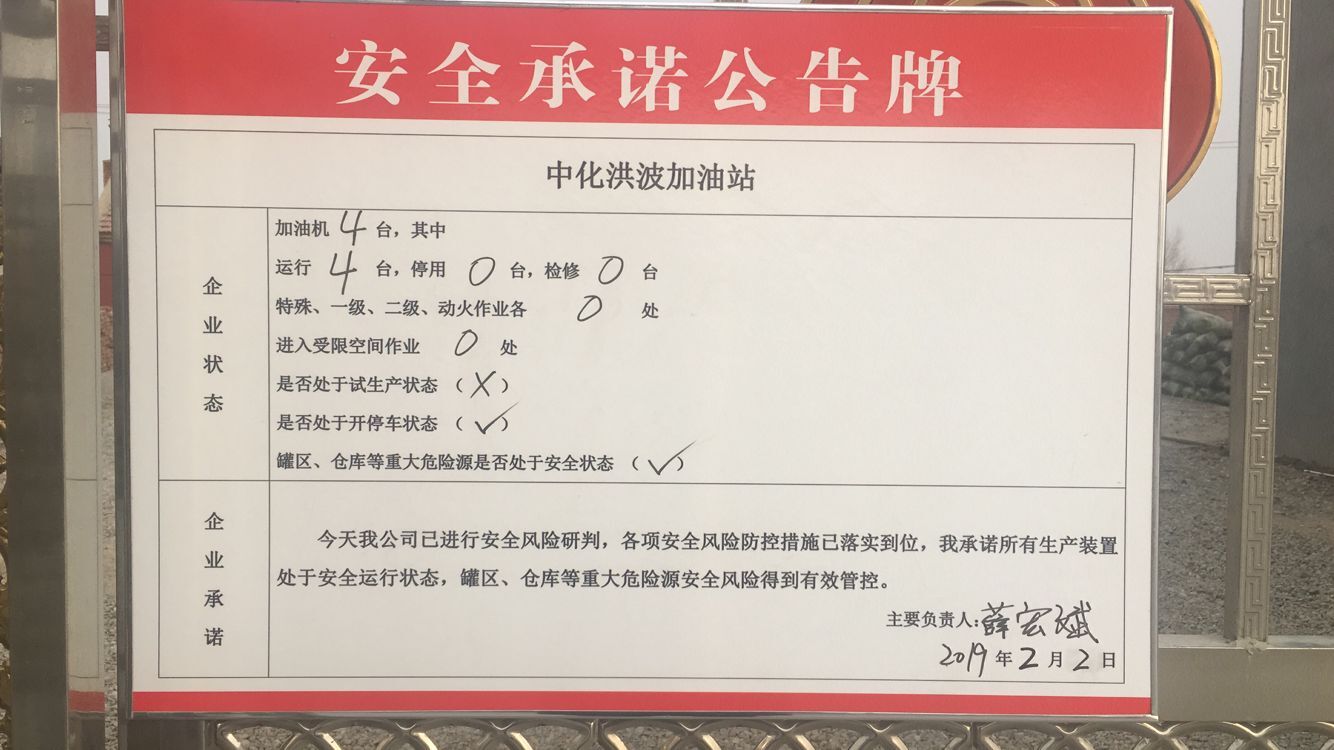 安全承诺公告牌
中化洪波加油站
企业状态
加油机 4 台，其中
运行 4 台，停用 0 台，检修 0 台
特殊、一级、二级、动火作业各 0 处
进入受限空间作业 0 处
是否处于试生产状态 （X）
是否处于开停车状态 （✓）
罐区、仓库等重大危险源是否处于安全状态 （✓）
企业承诺
今天我公司已进行安全风险研判，各项安全风险防控措施已落实到位，我承诺所有生产装置
处于安全运行状态，罐区、仓库等重大危险源安全风险得到有效管控。
主要负责人：薛宏斌
2019年2月2日